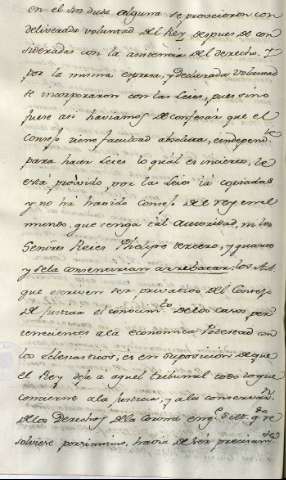 en el sin duda alguna se proveieron con
deliverada voluntad del Rey despues de con
sideradas con la asistencia del derecho. Y
por la misma expresa, y declarada voluntad
se incorporaron con las leies, pues sino
fuese asi haviamos de confesar que el
Consejo tiene facultad absoluta, e independ.te
para hacer Leies lo qual es incierto, le
está provido por las Leies iá copiadas
y no há havido Consejo de Rey en el
mundo, que tenga tál Autoridad, ni los
Señores Reies Phelipes tercero, y quarto
y se la consentirian arrebatar: los Aut.
que escriven ser privativo del Consejo
de Justicia el conocim.to de los casos per
tenecientes a la economica Potestad con
los eclesiasticos, es en suposicion de que
el Rey deja a aquel tribunal todo lo que
concierne a la Justicia, y a la conservaz.n
de los Derechos de la Corona
solviese por si mismo, havia de ser precisam.te